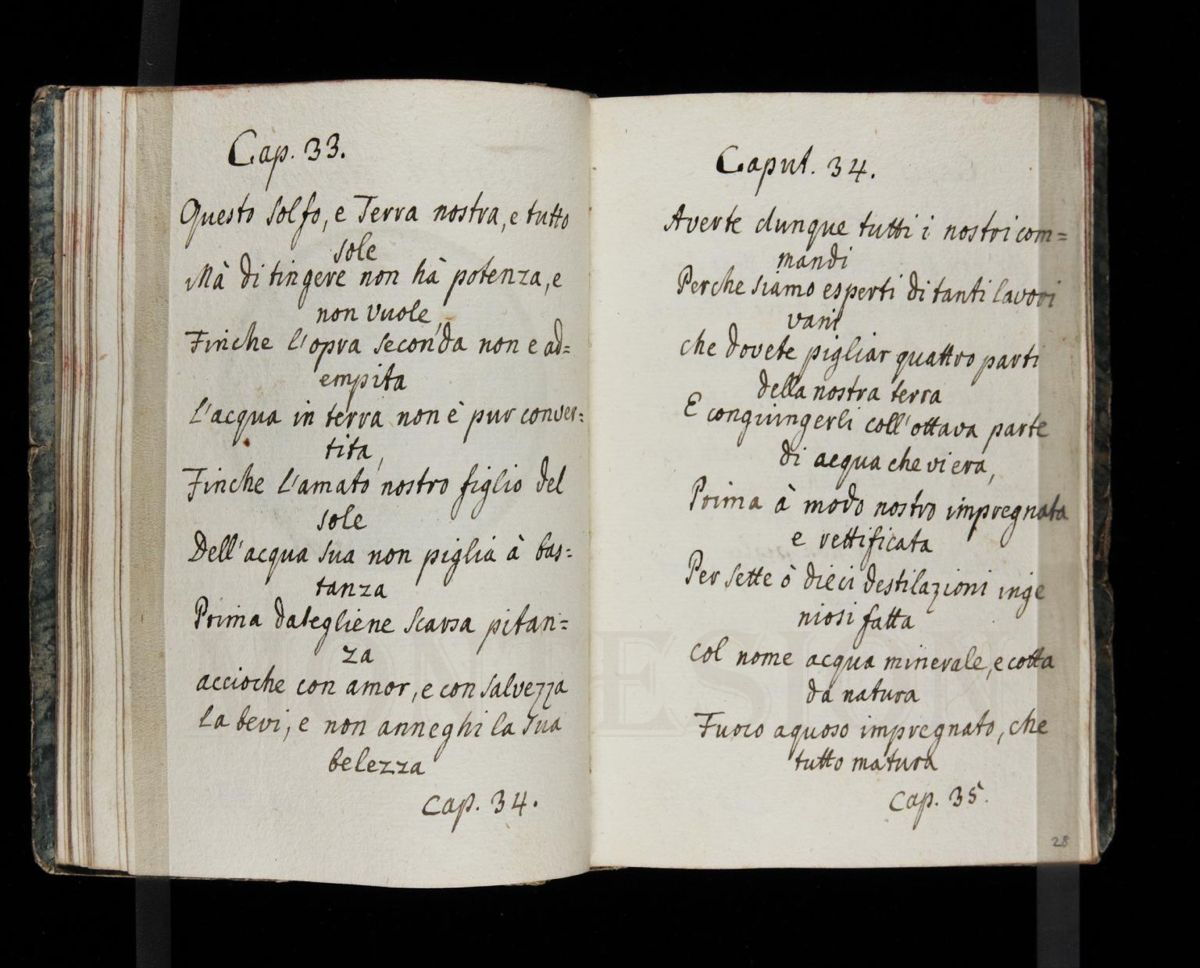 Cap. 33.
Questo solfo, e Terra nostra, e tutto
sole
Mà di tingere non hà potenza, e
non vuole,
Finche l'opra seconda non e ad=
empita
L'acqua in terra non è pur conver=
tita,
Finche l'amato nostro figlio del
sole
Dell'acqua sua non piglia à bas=
tanza
Prima dategliene scarsa pitan=
za
accioche con amor, e con salvezza
la bevi, e non anneghi la sua
belezza
Cap. 34.
Caput. 34.
Averte dunque tutti i nostri com=
mandi
Perche siamo esperti di tanti lavori
vani
che dovete pigliar quattro parti
della nostra terra
E conguingerli coll'ottava parte
di acqua che vi era,
Prima à modo nostro impregnata
e rettificata
Per sette ò dieci destilazioni inge
niosi fatta
Col nome acqua minerale, e cotta
da natura
Fuoco aquoso impregnato, che
tutto matura
Cap. 35.
28